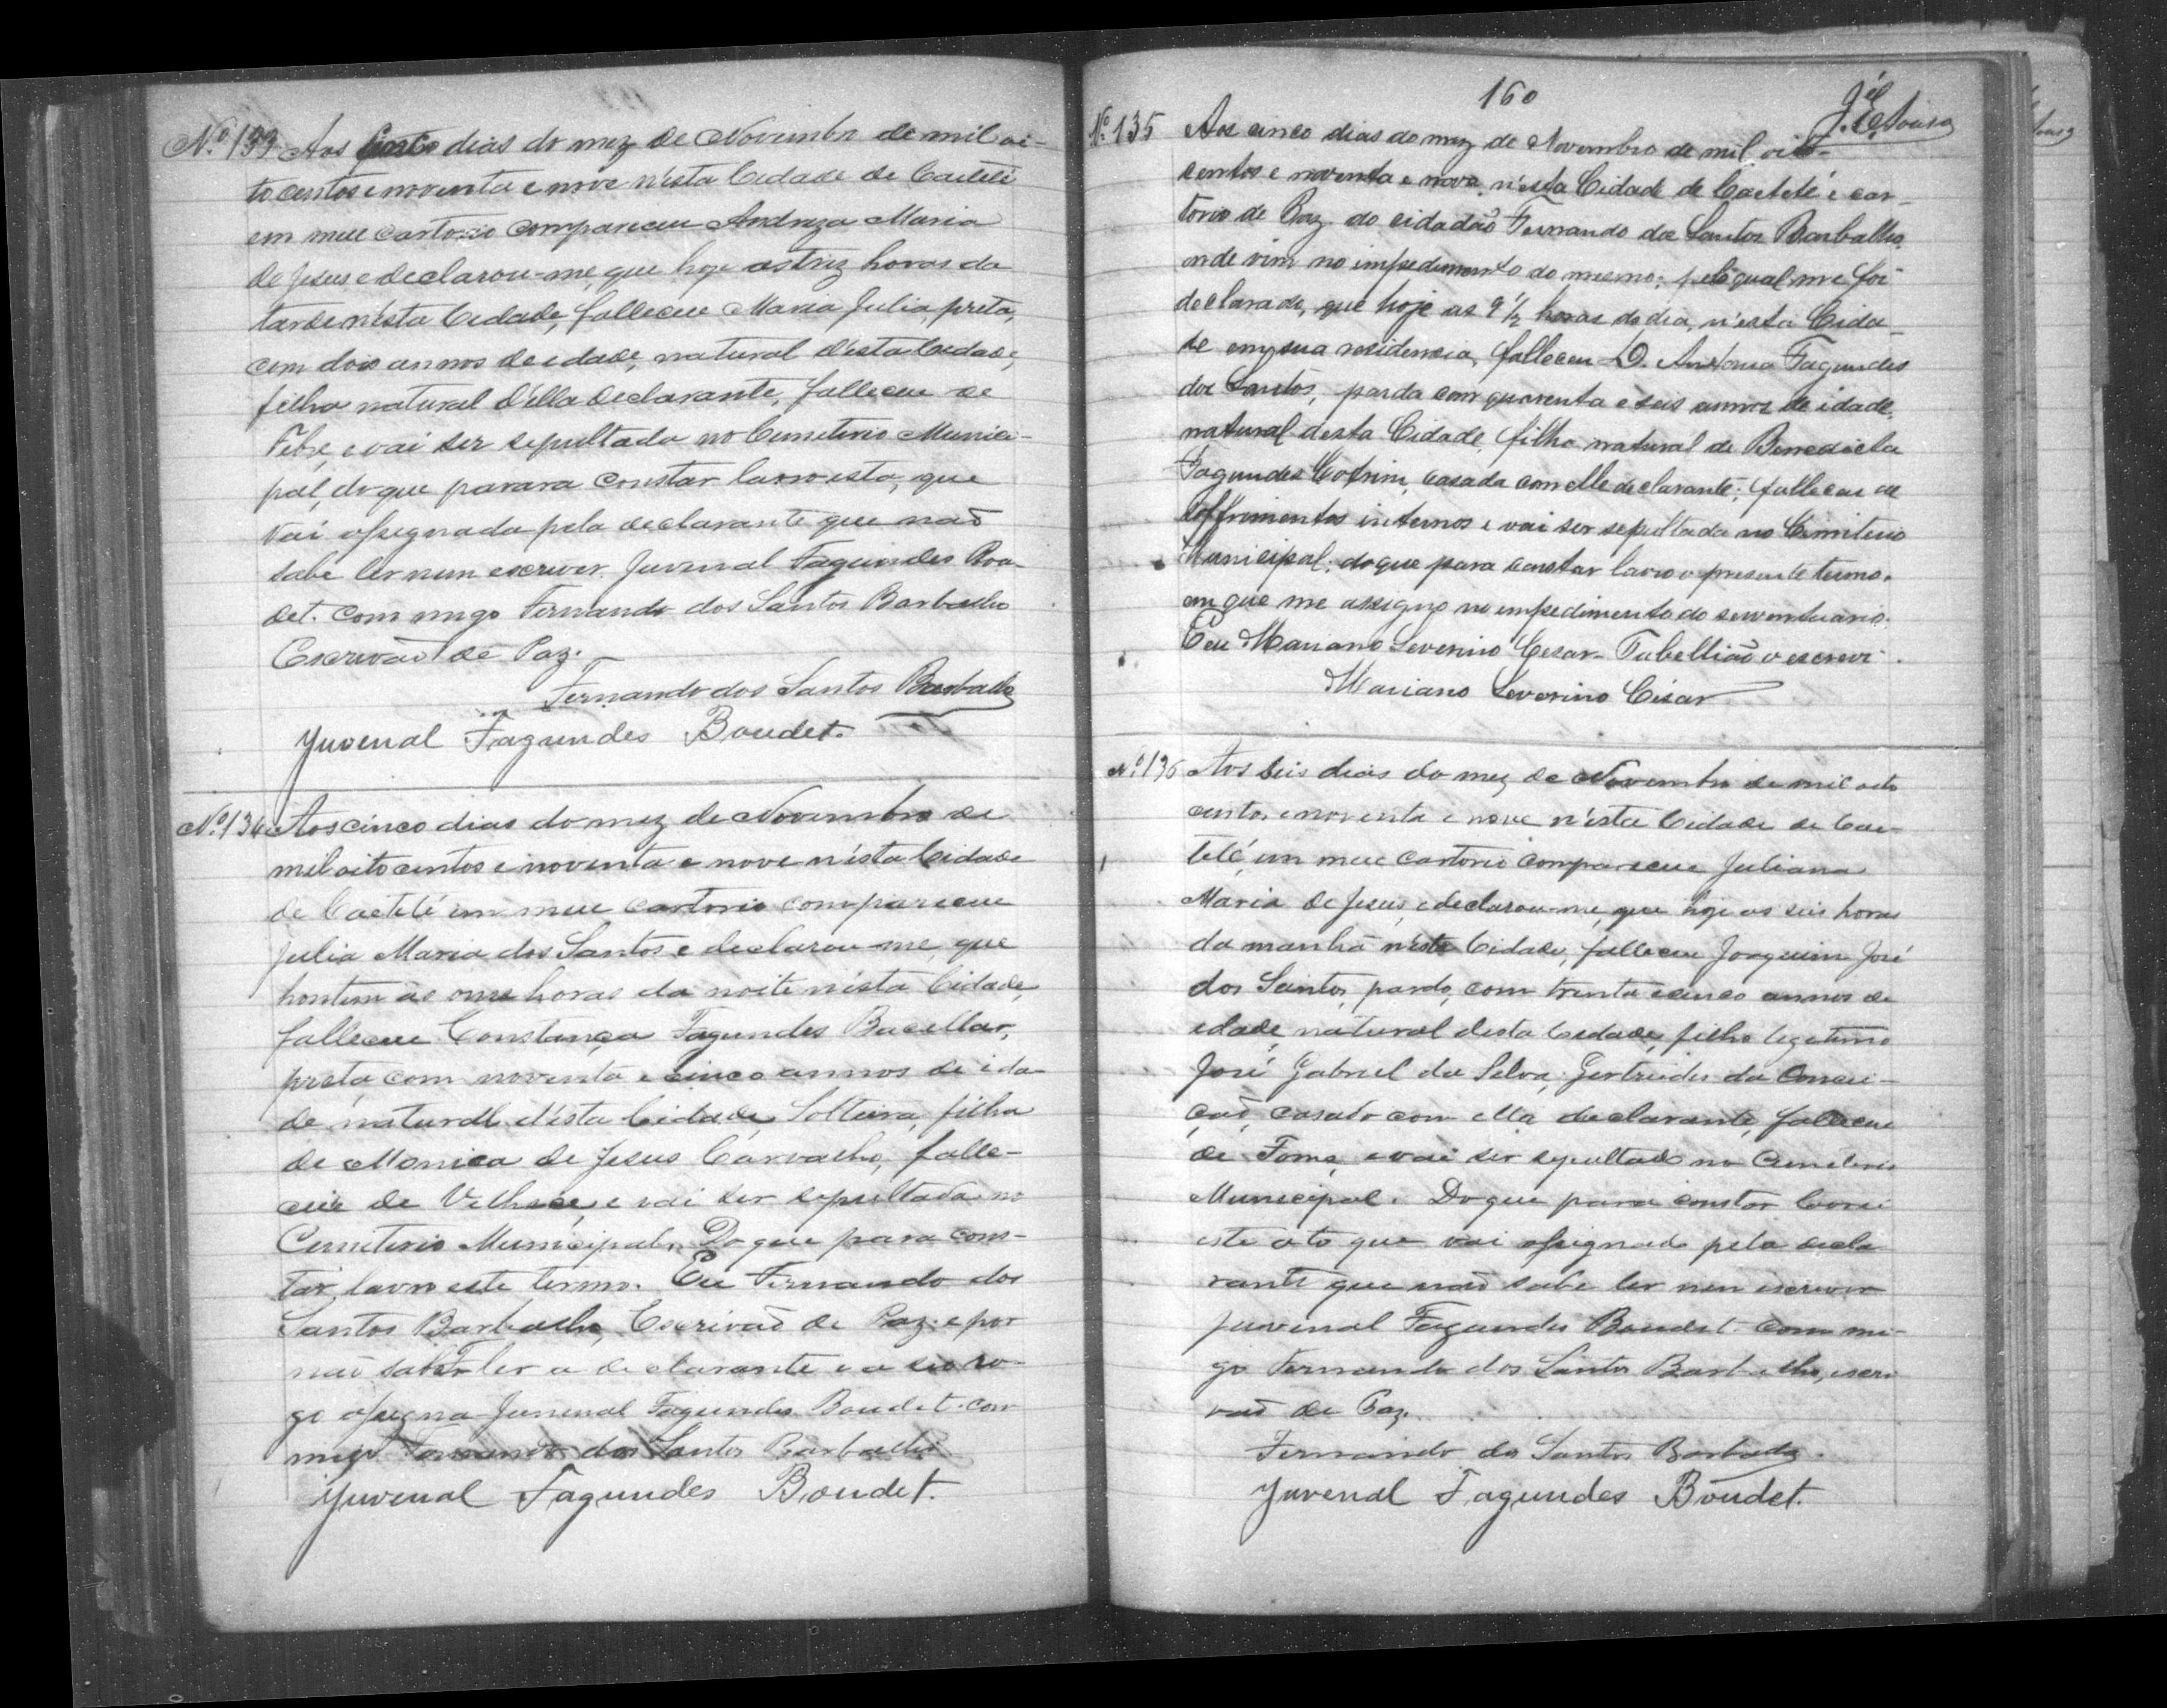 Nº 133 Aos dias do mez de Novembro de mil oi-
to centos e noventa e nove n'esta Cidade de Caeteté
em meu cartorio compareceu Andreza Maria
de Jesus e declarou-me, que hoje as trez horas da
tarde n'esta Cidade, falleceu Maria Julia, preta,
com dois annos de edade, natural d'esta Cidade,
filha natural d'ella declarante, falleceu de
Febre, e vai ser sepultada no Cemiterio Munici-
pal, do que parara constar lavro esta, que
vai assignada pela declarante que não
sabe ler nem escrever Juvenal Fagundes Bou-
det. com migo Fernando dos Santos Barbalho
Escrivão de Paz.
Fernando dos Santos Barbalho
Juvenal Fagundes Boudet.
Nº 134 Aos cinco dias do mez de Novembro de
mil oito centos e noventa e nove n'esta Cidade
de Caeteté em meu cartorio compareceu
Julia Maria dos Santos e declarou-me, que
hontem as onze horas da noite n'esta Cidade,
falleceu Constança Fagundes Bacellar,
preta, com noventa e cinco annos de ida-
de natural d'esta Cidade, Solteira, filha
de Monica de Jesus Carvalho, falle-
ceu de Velhice, e vai ser sepultada no
Cemiterio Municipal. Do que para cons-
tar, lavro este termo. Eu Fernando dos
Santos Barbalho, Escrivão de Paz. e por
não saber ler a declarante e a seo ro-
go assigna Juvenal Fagundes Boudet. com
migo Fernando dos Santos Barbalho
Juvenal Fagundes Boudet.
160
J. E. Sousa
Nº 135 Aos cinco dias do mez de Novembro de mil oito-
centos e noventa e nove, n'esta Cidade de Caeteté e car-
torio de Paz do cidadão Fernando dos Santos Barbalho,
onde vim no impedimento do mesmo; pelo qual me foi
declarado, que hoje as 9 1/2 horas do dia, n'esta Cida-
de em sua residencia, falleceu D. Antonia Fagundes
dos Santos, parda com quarenta e seis annos de idade,
natural desta Cidade, filha natural de Benedicta
Fagundes Cotrim, casada com elle declarante; falleceu de
soffrimentos internos e vai ser sepultada no Cemiterio
Municipal; do que para constar lavro o presente termo.
em que me assigno no impedimento do serventuario.
Eu Mariano Severino Cesar Tabellião o escrevi.
Mariano Severino Cesar
Nº 136 Aos seis dias do mez de Novembro de mil oito
centos e noventa e nove n'esta Cidade de Cae-
teté, em meu cartorio compareceu Juliana
Maria de Jesus, e declarou-me, que hoje as seis horas
da manhã n'esta Cidade, falleceu Joaquim José
dos Santos, pardo, com trinta e cinco annos de
edade, natural desta Cidade, filho legitimo
José Gabriel da Silva, Gertrudes da Concei-
ção, casado com ella declarante, falleceu
de Fome, e vai ser sepultado no Cemiterio
Municipal. Do que para constar lavrei
este ato que vai assignado pela decla
rante que não sabe ler nem escrever
Juvenal Fagundes Boudet. com mi-
go Fernando dos Santos Barbalho, escri
vão de Paz.
Fernando dos Santos Barbalho.
Juvenal Fagundes Boudet.